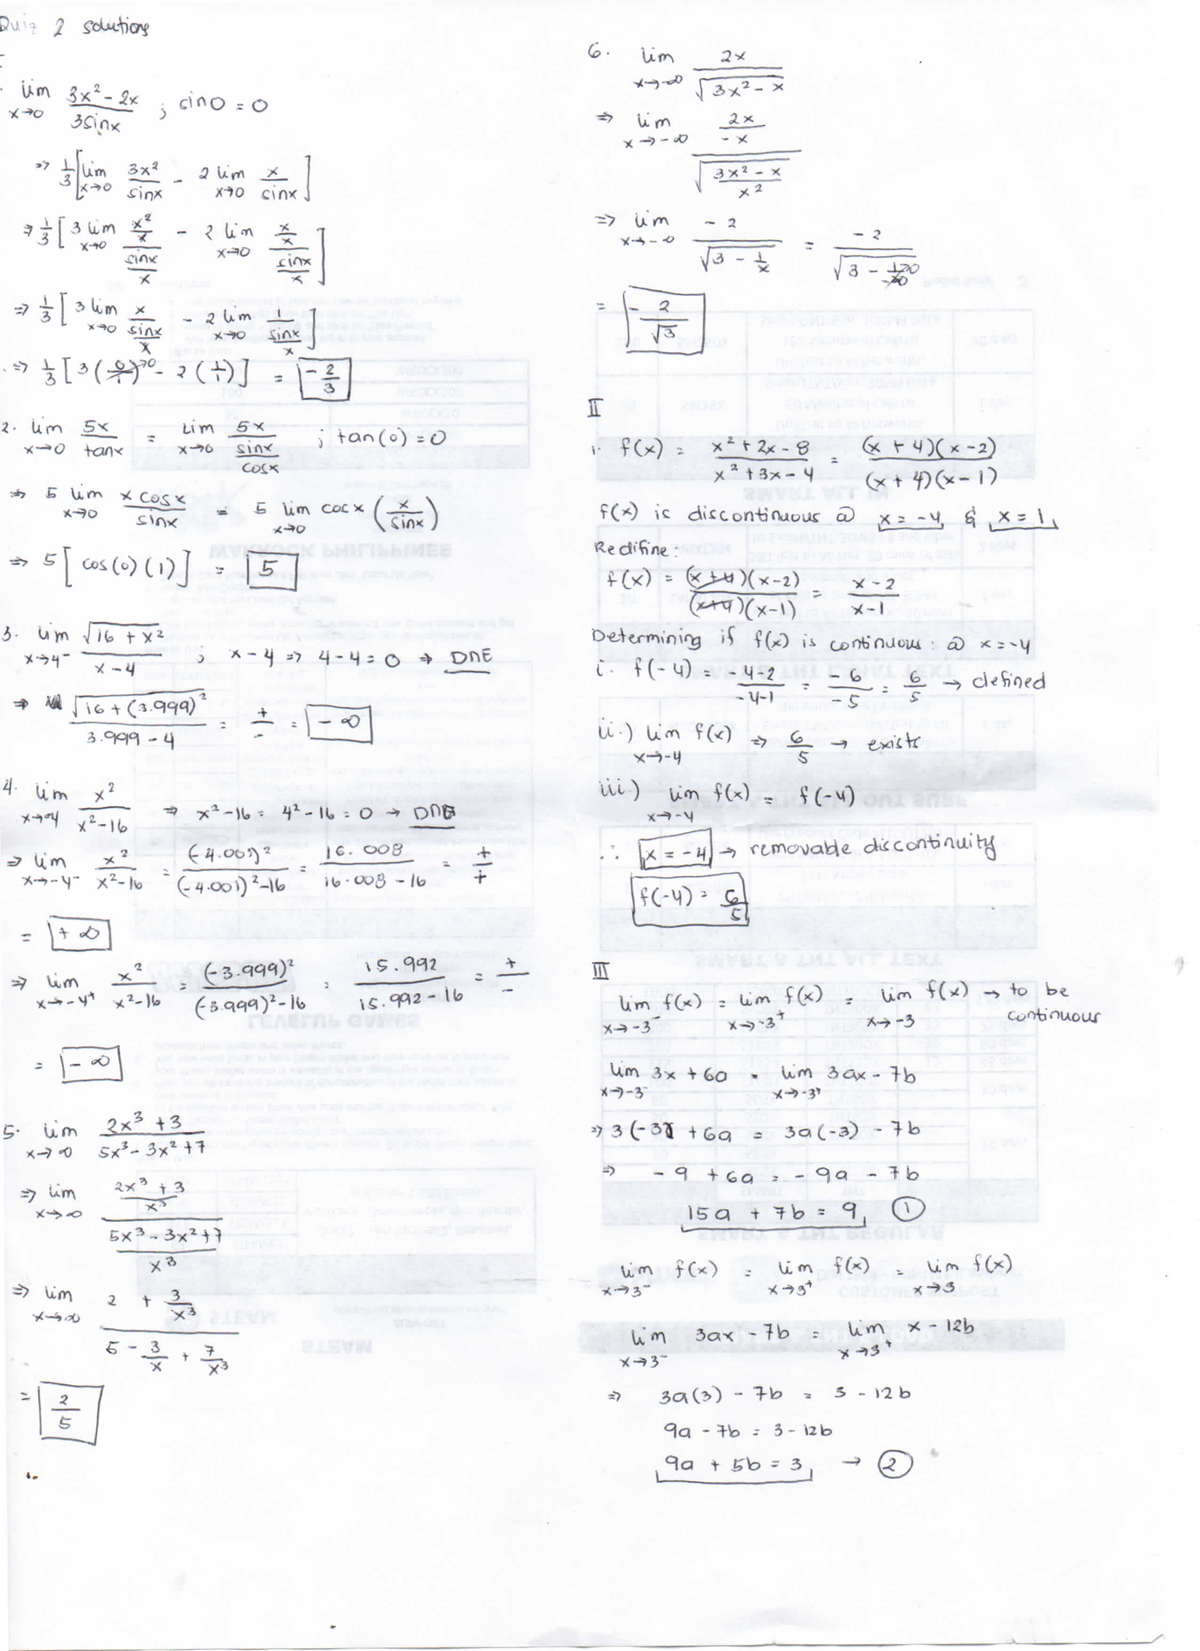 Quiz 2 solutions
lim x→0 (3x² - 2x)/(3sinx) ; sin0 = 0
⇒ 1/3 [lim x→0 3x²/sinx - 2 lim x→0 x/sinx]
⇒ 1/3 [3 lim x→0 (x²/x)/(sinx/x) - 2 lim x→0 (x/x)/(sinx/x)]
⇒ 1/3 [3 lim x→0 x/(sinx/x) - 2 lim x→0 1/(sinx/x)]
⇒ 1/3 [3(0/1)→0 - 2(1/1)] = -2/3
2. lim x→0 5x/tanx = lim x→0 5x/(sinx/cosx) ; tan(0) = 0
⇒ 5 lim x→0 xcosx/sinx = 5 lim x→0 cocx (x/sinx)
⇒ 5[cos(0)(1)] = 5
3. lim x→4⁻ √(16 + x²)/(x-4) ; x-4 ⇒ 4-4 = 0 ⇒ DNE
⇒ √(16 + (3.999)²)/(3.999-4) = +/- = -∞
4. lim x→-4 x²/(x²-16) ⇒ x²-16 = 4²-16 = 0 → DNE
⇒ lim x→-4⁻ x²/(x²-16) = (-4.001)²/((-4.001)²-16) = 16.008/(16.008-16) = +/+
= +∞
⇒ lim x→-4⁺ x²/(x²-16) = (-3.999)²/((-3.999)²-16) = 15.992/(15.992-16) = +/-
= -∞
5. lim x→∞ (2x³+3)/(5x³-3x²+7)
⇒ lim x→∞ ((2x³+3)/x³)/((5x³-3x²+7)/x³)
⇒ lim x→∞ (2 + 3/x³)/(5 - 3/x + 7/x³)
= 2/5
6. lim x→-∞ 2x/√(3x²-x)
⇒ lim x→-∞ (2x/-x)/√((3x²-x)/x²)
⇒ lim x→-∞ -2/√(3-1/x) = -2/√(3-1/-∞→0)
= -2/√3
II
1. f(x) = (x²+2x-8)/(x²+3x-4) = (x+4)(x-2)/(x+4)(x-1)
f(x) is discontinuous @ x=-4 & x=1
Redifine:
f(x) = (x+4)(x-2)/(x+4)(x-1) = (x-2)/(x-1)
Determining if f(x) is continuous: @ x=-4
i. f(-4) = (-4-2)/(-4-1) = -6/-5 = 6/5 → defined
ii.) lim x→-4 f(x) ⇒ 6/5 → exists
iii.) lim x→-4 f(x) = f(-4)
∴ x = -4 → removable discontinuity
f(-4) = 6/5
III
lim x→-3⁻ f(x) = lim x→-3⁺ f(x) = lim x→-3 f(x) → to be
continuous
lim x→-3⁻ 3x + 6a = lim x→-3⁺ 3ax - 7b
⇒ 3(-3) + 6a = 3a(-3) - 7b
⇒ -9 + 6a = -9a - 7b
15a + 7b = 9 ①
lim x→3⁻ f(x) = lim x→3⁺ f(x) = lim x→3 f(x)
lim x→3⁻ 3ax - 7b = lim x→3⁺ x - 12b
⇒ 3a(3) - 7b = 3 - 12b
9a - 7b = 3 - 12b
9a + 5b = 3 → ②